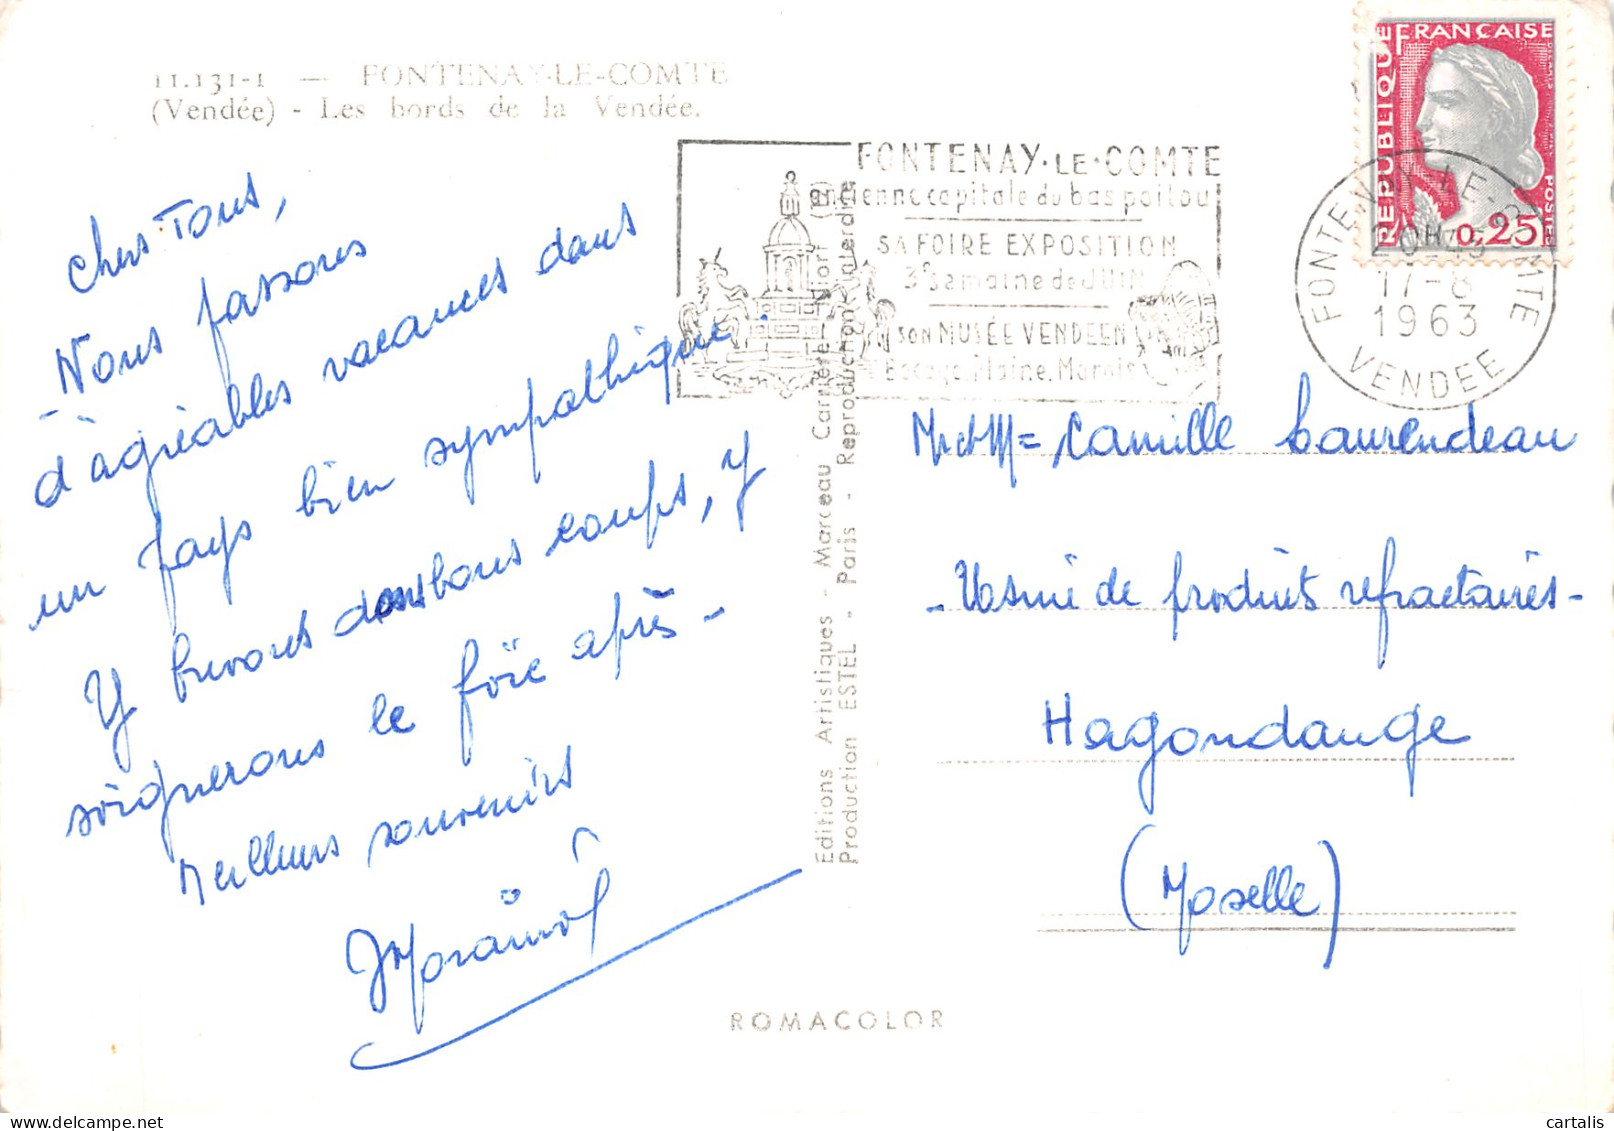 11.131-1 — FONTENAY-LE-COMTE
(Vendée) - Les bords de la Vendée.
chers Tous,
Nous passons
d'agréables vacances dans
un pays bien sympathique.
Y buvons dans bons coups, y
soignerons le foïe après -
Meilleurs souvenirs
Editions Artistiques - Marceau Carrière Niort (B)
Production ESTEL - Paris - Reproduction interdite
ROMACOLOR
FONTENAY·LE·COMTE
ancienne capitale du bas poitou
SA FOIRE EXPOSITION
3e Semaine de JUIN
SON MUSÉE VENDÉEN
Bocage, Plaine, Marais
REPUBLIQUE FRANÇAISE
POSTES
0,25
FONTENAY-LE-COMTE
17-8
1963
VENDEE
Mr et Mme Camille Laurendeau
- Usine de produits refractaires -
Hagondange
(Moselle)